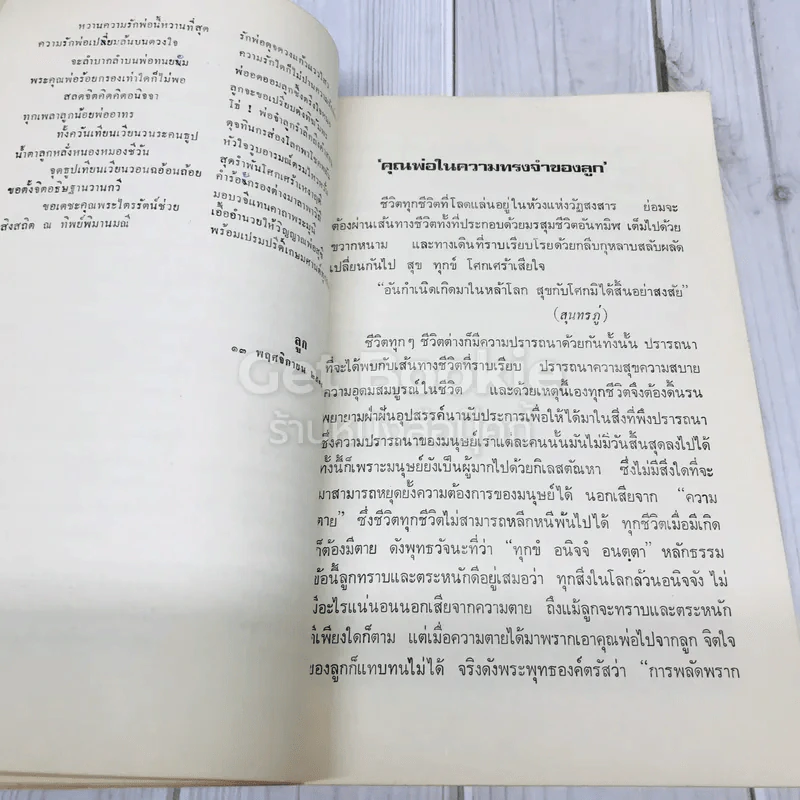 หวานความรักพ่อนี้หวานที่สุด
ความรักพ่อเปลี่ยมล้นบนดวงใจ
จะลำบากลำบนพ่อทนยิ้ม
พระคุณพ่อร้อยกรองเท่าใดก็ไม่พอ
สลดจิตคิดคิดอนิจจา
ทุกเพลาลูกน้อยพ่ออาทร
ทั้งควันเทียนเวียนวนระคนธูป
น้ำตาลูกหลั่งหนองหมองชีวัน
จุดธูปเทียนเวียนวอนถอ้นถ้อย
ขอตั้งจิตอธิษฐานวานกวี
ขอเดชะคุณพระไตรรัตน์ช่วย
สิงสถิต ณ ทิพย์พิมานมณี
รักพ่อดุจดวงแก้ว
ความรักใดก็ไม่ปาน
พ่อถอดถอมลูก
ลูกจะขอเปรียบดัง
โอ้ ! พ่อจ๋าลูกรำลึก
ดุจทินกรส่องโลก
หัวใจวูบอารมณ์ตรม
สุดรำพันโศกเศร้า
คำร้อยกรองต่างมาลา
มอบวจีแทนคาถาพระ
เอื้ออำนวยให้วิญญาณพ่อ
พร้อมเปรมปรีดิ์เกษม
ลูก
๑๓ พฤศจิกายน
'คุณพ่อในความทรงจำของลูก'
ชีวิตทุกชีวิตที่โลดแล่นอยู่ในห้วงแห่งวัฏสงสาร ย่อมจะ
ต้องผ่านเส้นทางชีวิตทั้งที่ประกอบด้วยมรสุมชีวิตอันทมิฬ เต็มไปด้วย
ขวากหนาม และทางเดินที่ราบเรียบโรยด้วยกลีบกุหลาบสลับผลัด
เปลี่ยนกันไป สุข ทุกข์ โศกเศร้าเสียใจ
"อันกำเนิดเกิดมาในหล้าโลก สุขกับโศกมิได้สิ้นอย่าสงสัย"
(สุนทรภู่)
ชีวิตทุกๆ ชีวิตต่างก็มีความปรารถนาด้วยกันทั้งนั้น ปรารถนา
ที่จะได้พบกับเส้นทางชีวิตที่ราบเรียบ ปรารถนาความสุขความสบาย
ความอุดมสมบูรณ์ในชีวิต และด้วยเหตุนี้เองทุกชีวิตจึงต้องดิ้นรน
พยายามฝ่าฟันอุปสรรค์นานับประการเพื่อให้ได้มาในสิ่งที่พึงปรารถนา
ซึ่งความปรารถนาของมนุษย์เราแต่ละคนนั้นมันไม่มีวันสิ้นสุดลงไปได้
ทั้งนี้ก็เพราะมนุษย์ยังเป็นผู้มากไปด้วยกิเลสตัณหา ซึ่งไม่มีสิ่งใดที่จะ
มาสามารถหยุดยั้งความต้องการของมนุษย์ได้ นอกเสียจาก "ความ
ตาย" ซึ่งชีวิตทุกชีวิตไม่สามารถหลีกหนีพ้นไปได้ ทุกชีวิตเมื่อมีเกิด
ก็ต้องมีตาย ดังพุทธวัจนะที่ว่า "ทุกขํ อนิจจํ อนตฺตา" หลักธรรม
ข้อนี้ลูกทราบและตระหนักดีอยู่เสมอว่า ทุกสิ่งในโลกล้วนอนิจจัง ไม่
มีอะไรแน่นอนนอกเสียจากความตาย ถึงแม้ลูกจะทราบและตระหนัก
ดีเพียงใดก็ตาม แต่เมื่อความตายได้มาพรากเอาคุณพ่อไปจากลูก จิตใจ
ของลูกก็แทบทนไม่ได้ จริงดังพระพุทธองค์ตรัสว่า "การพลัดพราก
Get Bookie
ร้านหนังสือบุ๊คกี้